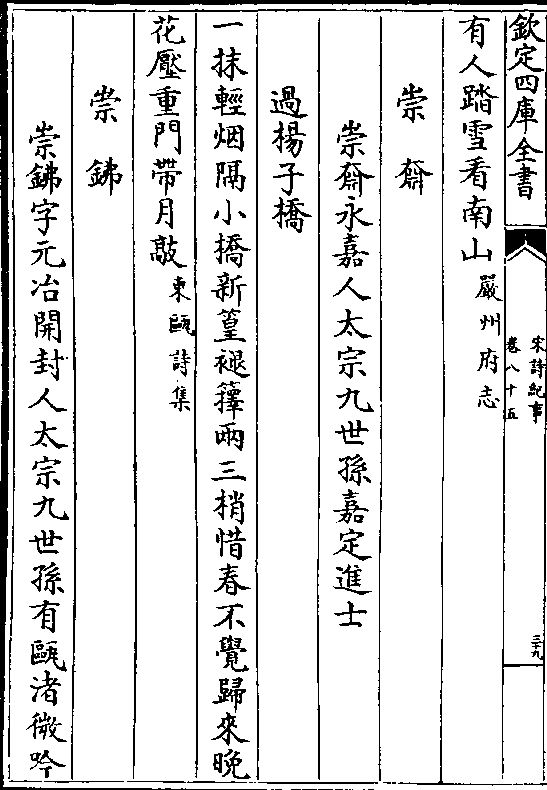 欽定四庫全書
宋詩紀事
卷八十五
三十九
有人踏雪看南山嚴州府志
崇齋
崇齋永嘉人太宗九世孫嘉定進士
過楊子橋
一抹輕烟隔小橋新篁褪籜兩三梢惜春不覺歸來晚
花壓重門帶月敲東甌詩集
崇鉘
崇鉘字元冶開封人太宗九世孫有甌渚微吟